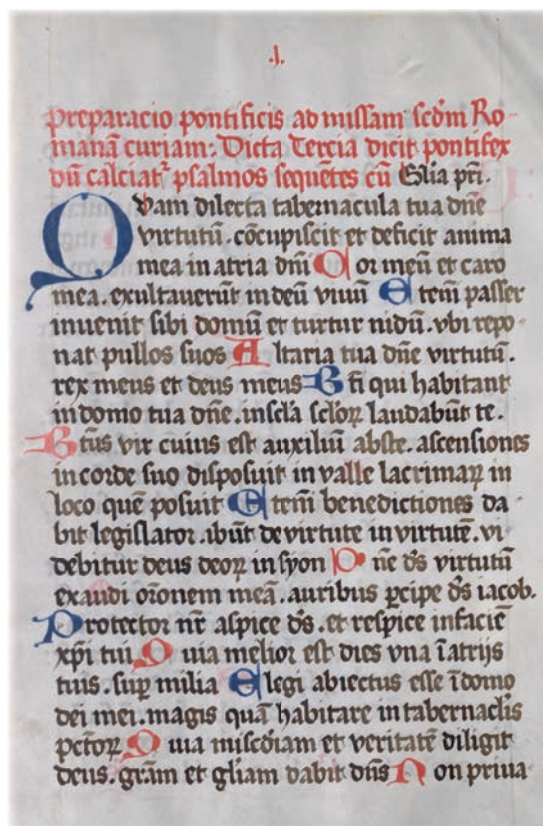 .I.
Preparacio pontificis ad missam scd̄m Ro-
manā curiam: Dicta Tercia dicit pontifex
dū calciatꝛ psalmos sequētes cū Gl̄ia pr̄i.
Qvam dilecta tabernacula tua dn̄e
virtutū. cōcupiscit et deficit anima
mea in atria dn̄i Cor meū et caro
mea. exultaverūt in deū vivū Etem̄ passer
invenit sibi domū et turtur nidū. vbi repo-
nat pullos suos Altaria tua dn̄e virtutū.
rex meus et deus meus Bt̄i qui habitant
in domo tua dn̄e. in scl̄a sclōꝝ laudabūt te.
Bt̄us vir cuius est auxiliū abste. ascensiones
in corde suo disposuit in valle lacrimaꝝ in
loco quē posuit Etem̄ benedictiones da-
bit legislator. ibūt de virtute in virtutē. vi
debitur deus deoꝝ in syon Dn̄e ds̄ virtutū
exaudi or̄onem meā. auribus ꝑcipe ds̄ iacob.
Protector nr̄ aspice ds̄. et respice in faciē
xp̄i tui Quia melior est dies vna ī atrijs
tuis. suꝑ milia Elegi abiectus esse ī domo
dei mei. magis quā habitare in tabernacl̄is
pctōꝝ Quia mis̄cdiam et veritatē diligit
deus. grā̄m et gl̄iam dabit dn̄s Non priva-